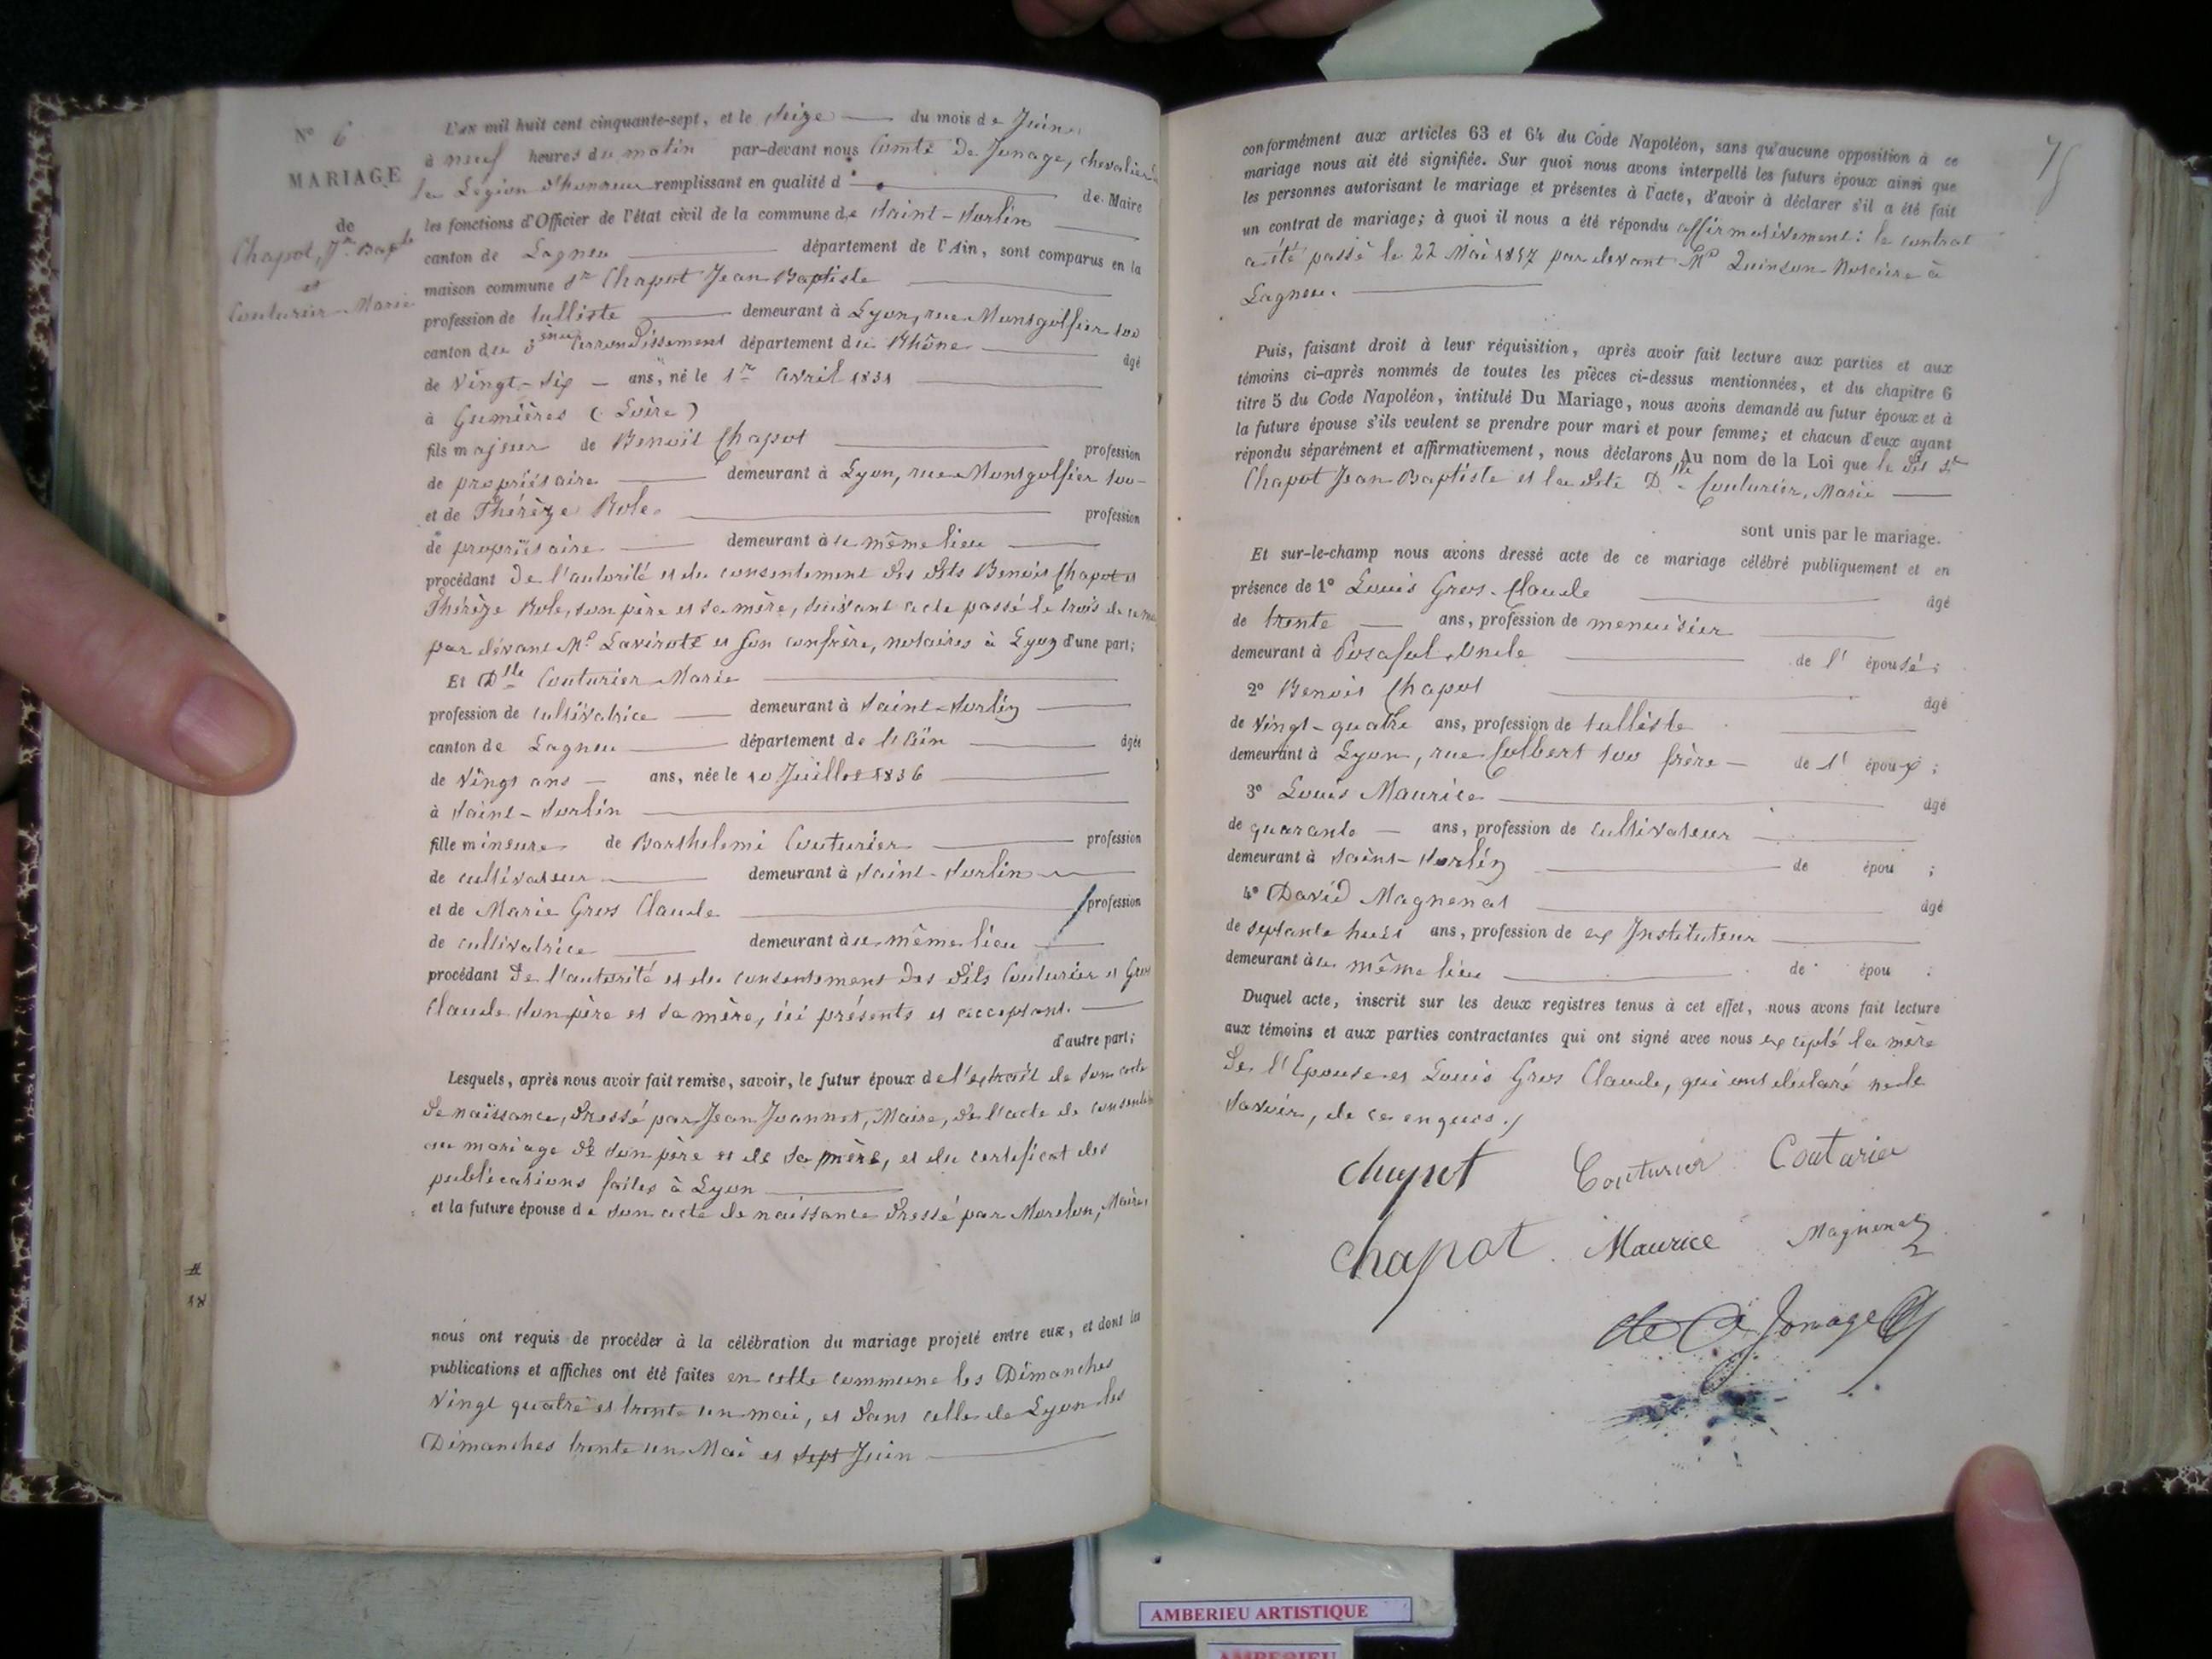 N° 6
MARIAGE
de
Chapot, Jn Bapte
et
Couturier Marie
L'an mil huit cent cinquante-sept, et le seize du mois de Juin
à neuf heures du matin par-devant nous Comte De Jonage, chevalier de
la Légion d'honneur remplissant en qualité d de Maire
les fonctions d'Officier de l'état civil de la commune de Saint-Sorlin
canton de Lagneu département de l'Ain, sont comparus en la
maison commune Sr Chapot Jean Baptiste
profession de tulliste demeurant à Lyon, rue Montgolfier 100
canton du 3ème arrondissement département du Rhône âgé
de Vingt-six ans, né le 1er avril 1831
à Gumières (Loire)
fils majeur de Benoit Chapot profession
de propriétaire demeurant à Lyon, rue Montgolfier 100
et de Thérèze Role profession
de propriétaire demeurant à u même lieu
procédant De l'autorité et du consentement des dits Benoit Chapot et
Thérèze Role, son père et sa mère, suivant acte passé le trois de ce mois
par devant Me Lavirote et son confrère, notaires à Lyon d'une part;
Et Dlle Couturier Marie
profession de cultivatrice demeurant à Saint-Sorlin
canton de Lagneu département de l'Ain âgée
de Vingt ans ans, née le 10 Juillet 1836
à Saint-Sorlin
fille mineure de Barthelemi Couturier profession
de cultivateur demeurant à Saint-Sorlin
et de Marie Gros Claude profession
de cultivatrice demeurant à u même lieu
procédant De l'autorité et du consentement des dits Couturier et Gros
Claude son père et sa mère, ici présents et acceptant.
d'autre part;
Lesquels, après nous avoir fait remise, savoir, le futur époux de l'extrait de son acte
de naissance, dressé par Jean Joannot, Maire, de l'acte de consentem
au mariage de son père et de sa mère, et du certificat des
publications faites à Lyon
et la future épouse de son acte de naissance dressé par Morelon, Maire
nous ont requis de procéder à la célébration du mariage projeté entre eux, et dont les
publications et affiches ont été faites en cette commune les Dimanches
Vingt quatre et trente un mai, et dans celle de Lyon les
Dimanches trente un Mai et sept Juin
conformément aux articles 63 et 64 du Code Napoléon, sans qu'aucune opposition à ce
mariage nous ait été signifiée. Sur quoi nous avons interpellé les futurs époux ainsi que
les personnes autorisant le mariage et présentes à l'acte, d'avoir à déclarer s'il a été fait
un contrat de mariage; à quoi il nous a été répondu affirmativement: le contrat
a été passé le 22 Mai 1857 par devant Me Quinson Notaire à
Lagneu.
Puis, faisant droit à leur réquisition, après avoir fait lecture aux parties et aux
témoins ci-après nommés de toutes les pièces ci-dessus mentionnées, et du chapitre 6
titre 5 du Code Napoléon, intitulé Du Mariage, nous avons demandé au futur époux et à
la future épouse s'ils veulent se prendre pour mari et pour femme; et chacun d'eux ayant
répondu séparément et affirmativement, nous déclarons Au nom de la Loi que le dit Sr
Chapot Jean Baptiste et la dite Dlle Couturier, Marie
sont unis par le mariage.
Et sur-le-champ nous avons dressé acte de ce mariage célébré publiquement et en
présence de 1° Louis Gros-Claude âgé
de trente ans, profession de menuisier
demeurant à Posafol, Oncle de l' épouse;
2° Benoit Chapot âgé
de Vingt-quatre ans, profession de tulliste
demeurant à Lyon, rue Colbert 100 frère de l' époux;
3° Louis Maurice âgé
de quarante ans, profession de cultivateur
demeurant à Saint-Sorlin de épou ;
4° David Magnenat âgé
de septante huit ans, profession de ex Instituteur
demeurant à u même lieu de épou ;
Duquel acte, inscrit sur les deux registres tenus à cet effet, nous avons fait lecture
aux témoins et aux parties contractantes qui ont signé avec nous excepté la mère
de l'Epouse et Louis Gros Claude, qui ont déclaré ne le
savoir, de ce enquis.
chapot Couturier Couturier
Chapot Maurice Magnenat
de Jonage
AMBERIEU ARTISTIQUE
AMBERIEU